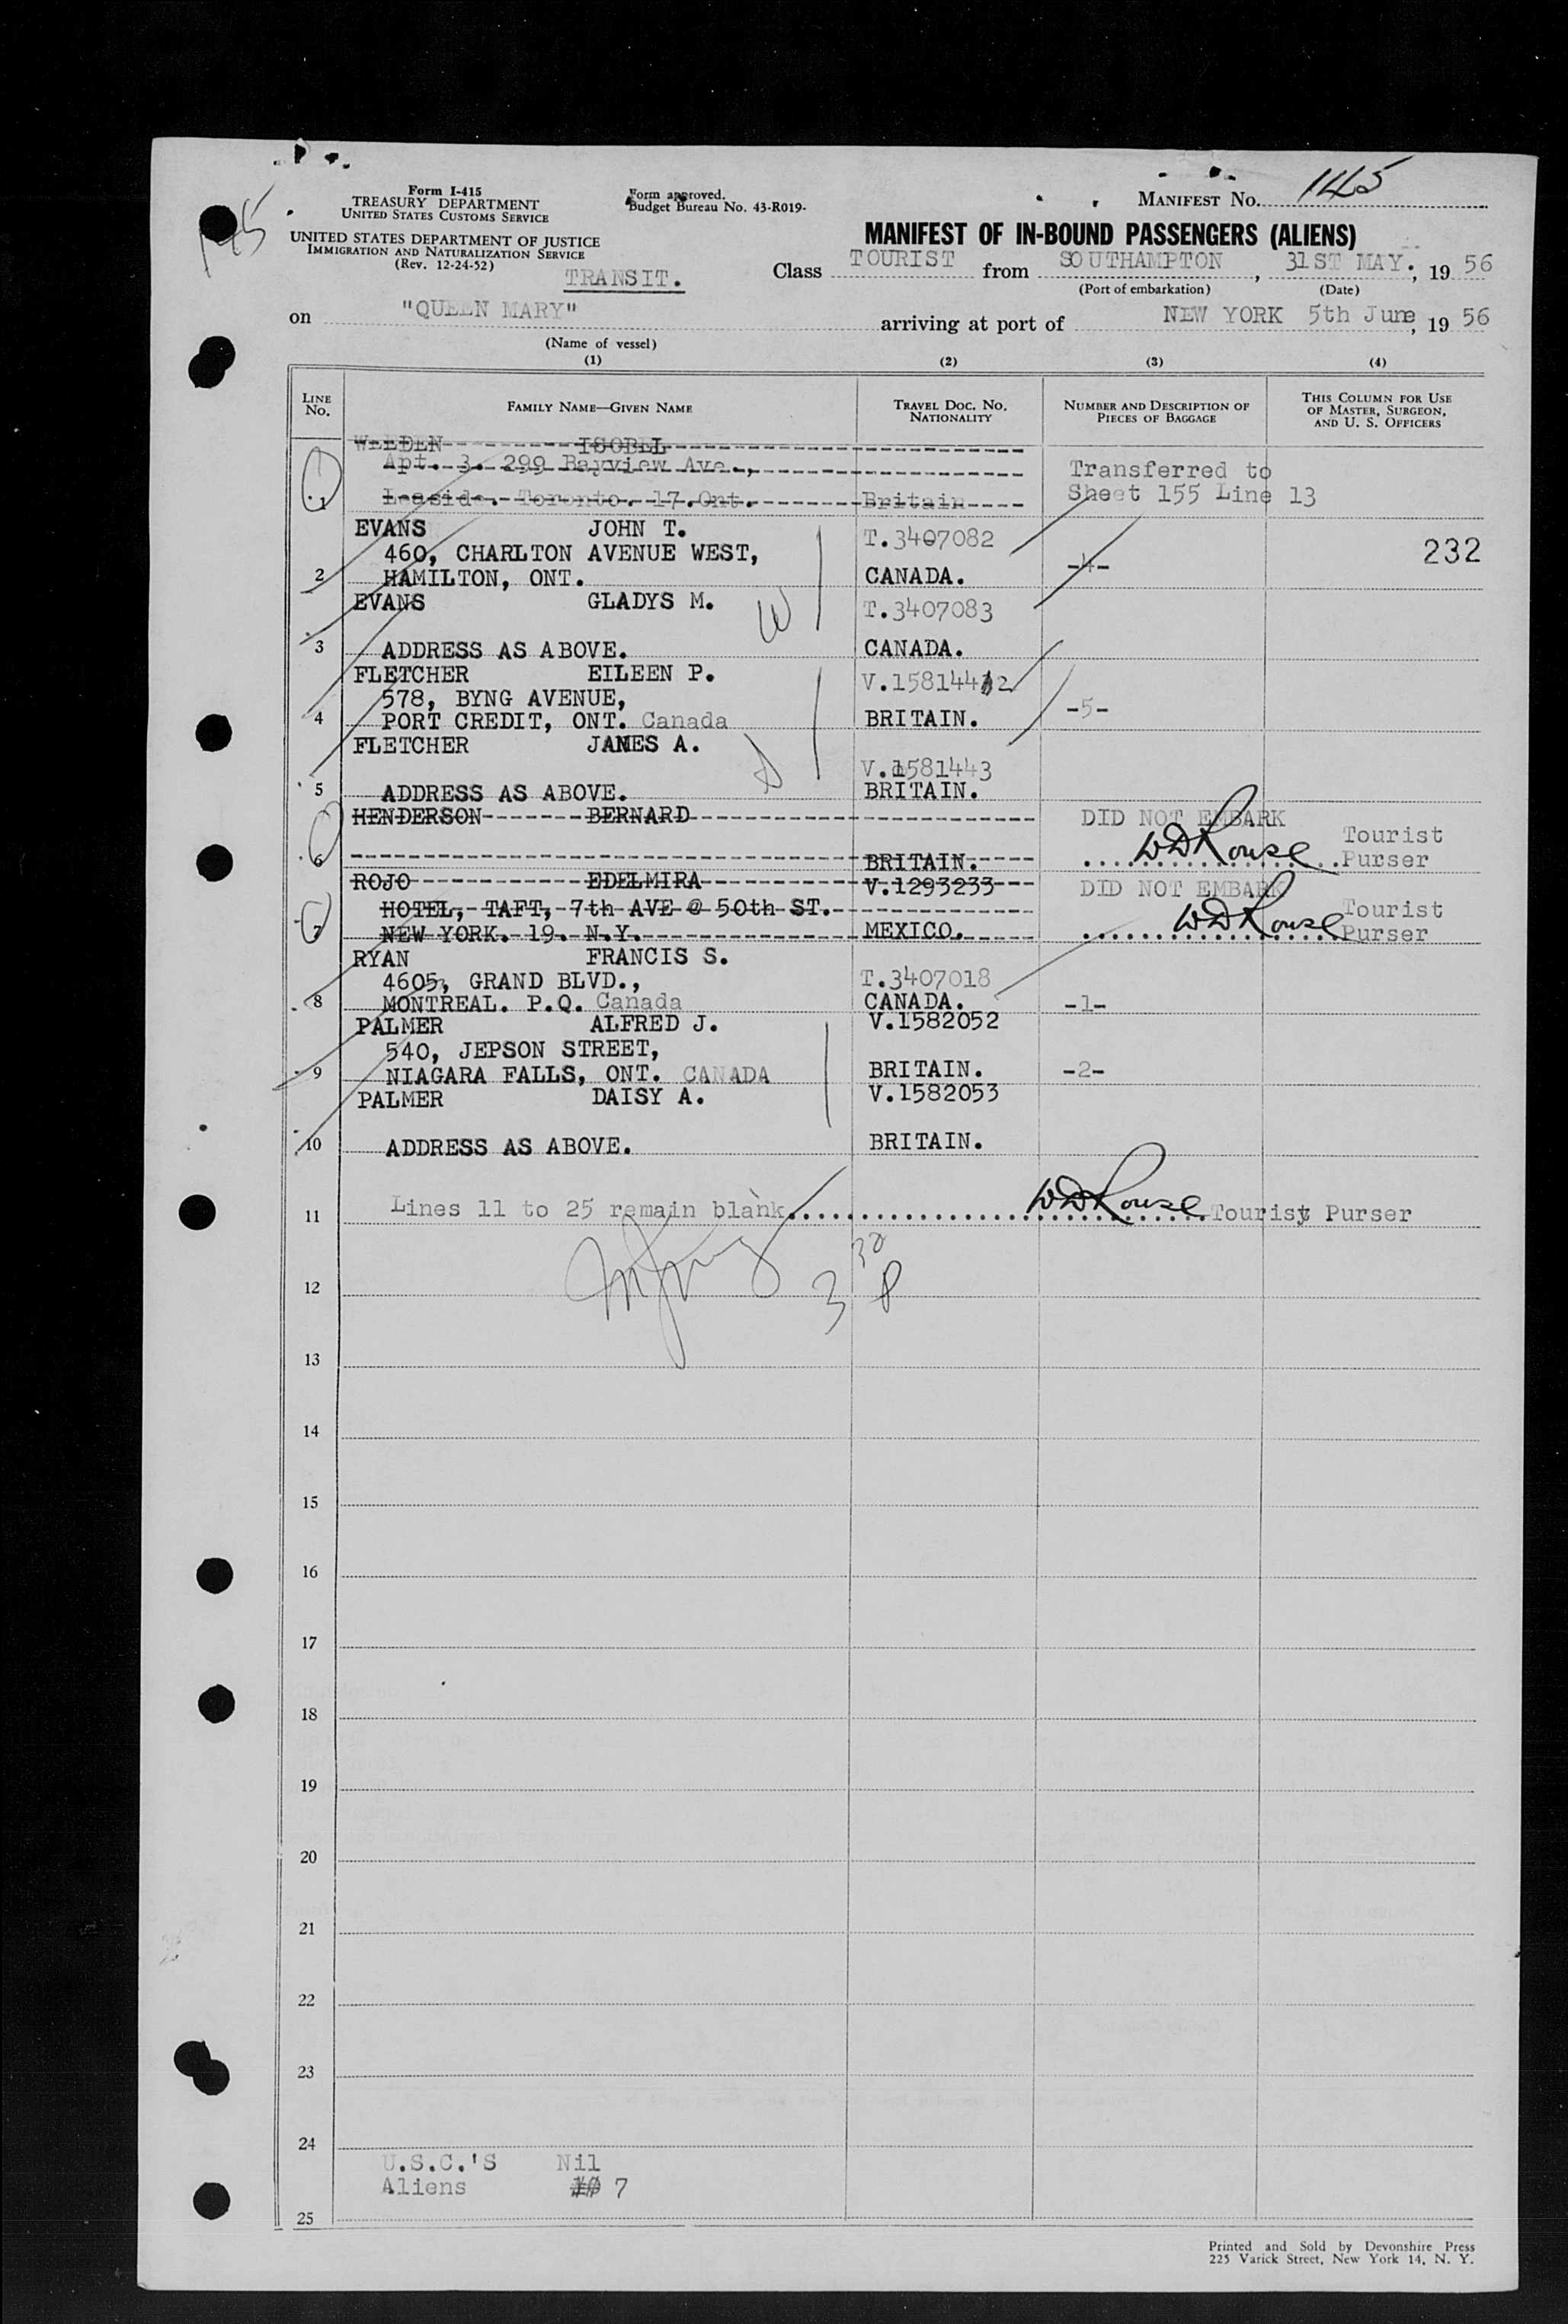 Form I-415
TREASURY DEPARTMENT
UNITED STATES CUSTOMS SERVICE
Form approved.
Budget Bureau No. 43-R019-
MANIFEST No. 145
145
UNITED STATES DEPARTMENT OF JUSTICE
IMMIGRATION AND NATURALIZATION SERVICE
(Rev. 12-24-52)
TRANSIT.
MANIFEST OF IN-BOUND PASSENGERS (ALIENS)
Class TOURIST from SOUTHAMPTON, 31ST MAY., 19 56
(Port of embarkation) (Date)
on "QUEEN MARY" arriving at port of NEW YORK 5th June, 19 56
(Name of vessel)
(1) (2) (3) (4)
LINE No. FAMILY NAME—GIVEN NAME TRAVEL DOC. No. NATIONALITY NUMBER AND DESCRIPTION OF PIECES OF BAGGAGE THIS COLUMN FOR USE OF MASTER, SURGEON, AND U. S. OFFICERS
WEEDEN ISOBEL
Apt. 3. 299 Bayview Ave., Transferred to
1 Leaside. Toronto. 17.Ont. Britain Sheet 155 Line 13
EVANS JOHN T. T.3407082
460, CHARLTON AVENUE WEST, 232
2 HAMILTON, ONT. CANADA. -4-
EVANS GLADYS M. T.3407083
3 ADDRESS AS ABOVE. CANADA.
FLETCHER EILEEN P. V.1581442
578, BYNG AVENUE, -5-
4 PORT CREDIT, ONT. Canada BRITAIN.
FLETCHER JAMES A.
V.1581443
5 ADDRESS AS ABOVE. BRITAIN.
HENDERSON BERNARD DID NOT EMBARK
WD Rouse Tourist
6 BRITAIN. Purser
ROJO EDELMIRA V.1293233 DID NOT EMBARK
HOTEL, TAFT, 7th AVE @ 50th ST. WD Rouse Tourist
7 NEW YORK. 19. N.Y. MEXICO. Purser
RYAN FRANCIS S.
4605, GRAND BLVD., T.3407018
8 MONTREAL. P.Q. Canada CANADA. -1-
PALMER ALFRED J. V.1582052
540, JEPSON STREET,
9 NIAGARA FALLS, ONT. CANADA BRITAIN. -2-
PALMER DAISY A. V.1582053
10 ADDRESS AS ABOVE. BRITAIN.
11 Lines 11 to 25 remain blank WD Rouse Tourist Purser
12
13
14
15
16
17
18
19
20
21
22
23
24
U.S.C.'S Nil
Aliens 10 7
25
Printed and Sold by Devonshire Press
225 Varick Street, New York 14, N. Y.